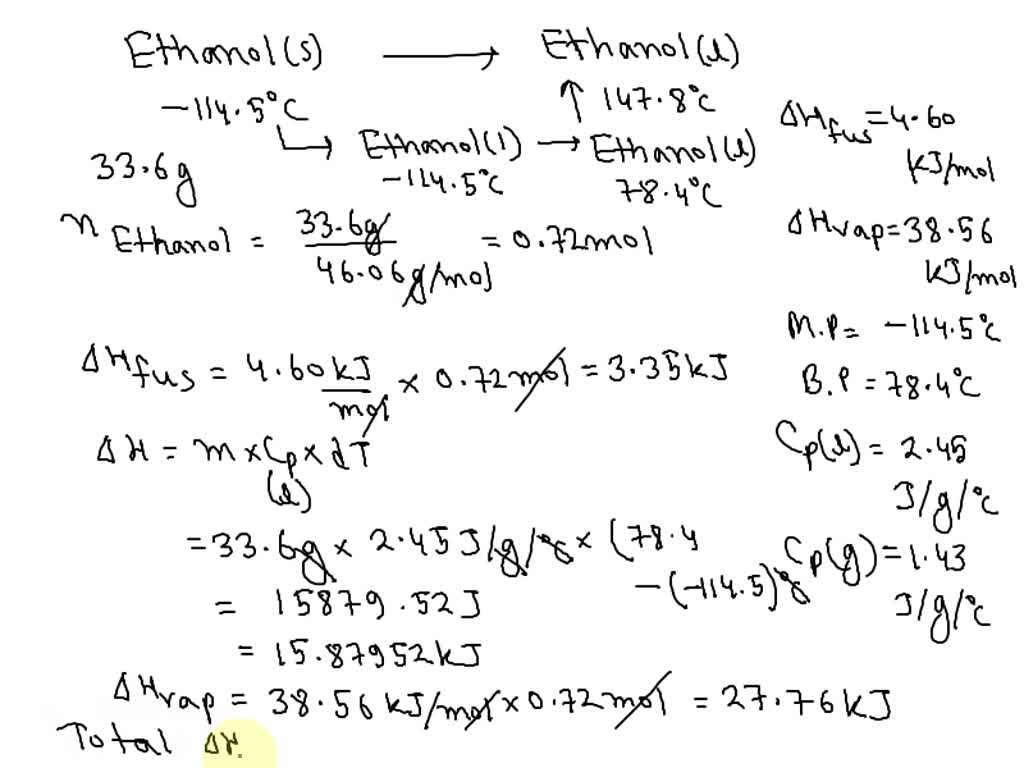 Ethanol(s) ⟶ Ethanol(l)
-114.5°C ↑ 147.8°C
↳ Ethanol(l) → Ethanol(l)
-114.5°C 78.4°C
33.6g
n Ethanol = 33.6g / 46.06g/mol = 0.72mol
ΔHfus = 4.60 kJ/mol × 0.72mol = 3.35kJ
ΔH = m×Cp(l)×dT
= 33.6g × 2.45J/g/°C × (78.4
-(-114.5)°C
= 15879.52J
= 15.87952kJ
ΔHvap = 38.56 kJ/mol × 0.72mol = 27.76kJ
Total ΔH
ΔHfus = 4.60
kJ/mol
ΔHvap = 38.56
kJ/mol
M.P = -114.5°C
B.P = 78.4°C
Cp(l) = 2.45
J/g/°C
Cp(g) = 1.43
J/g/°C